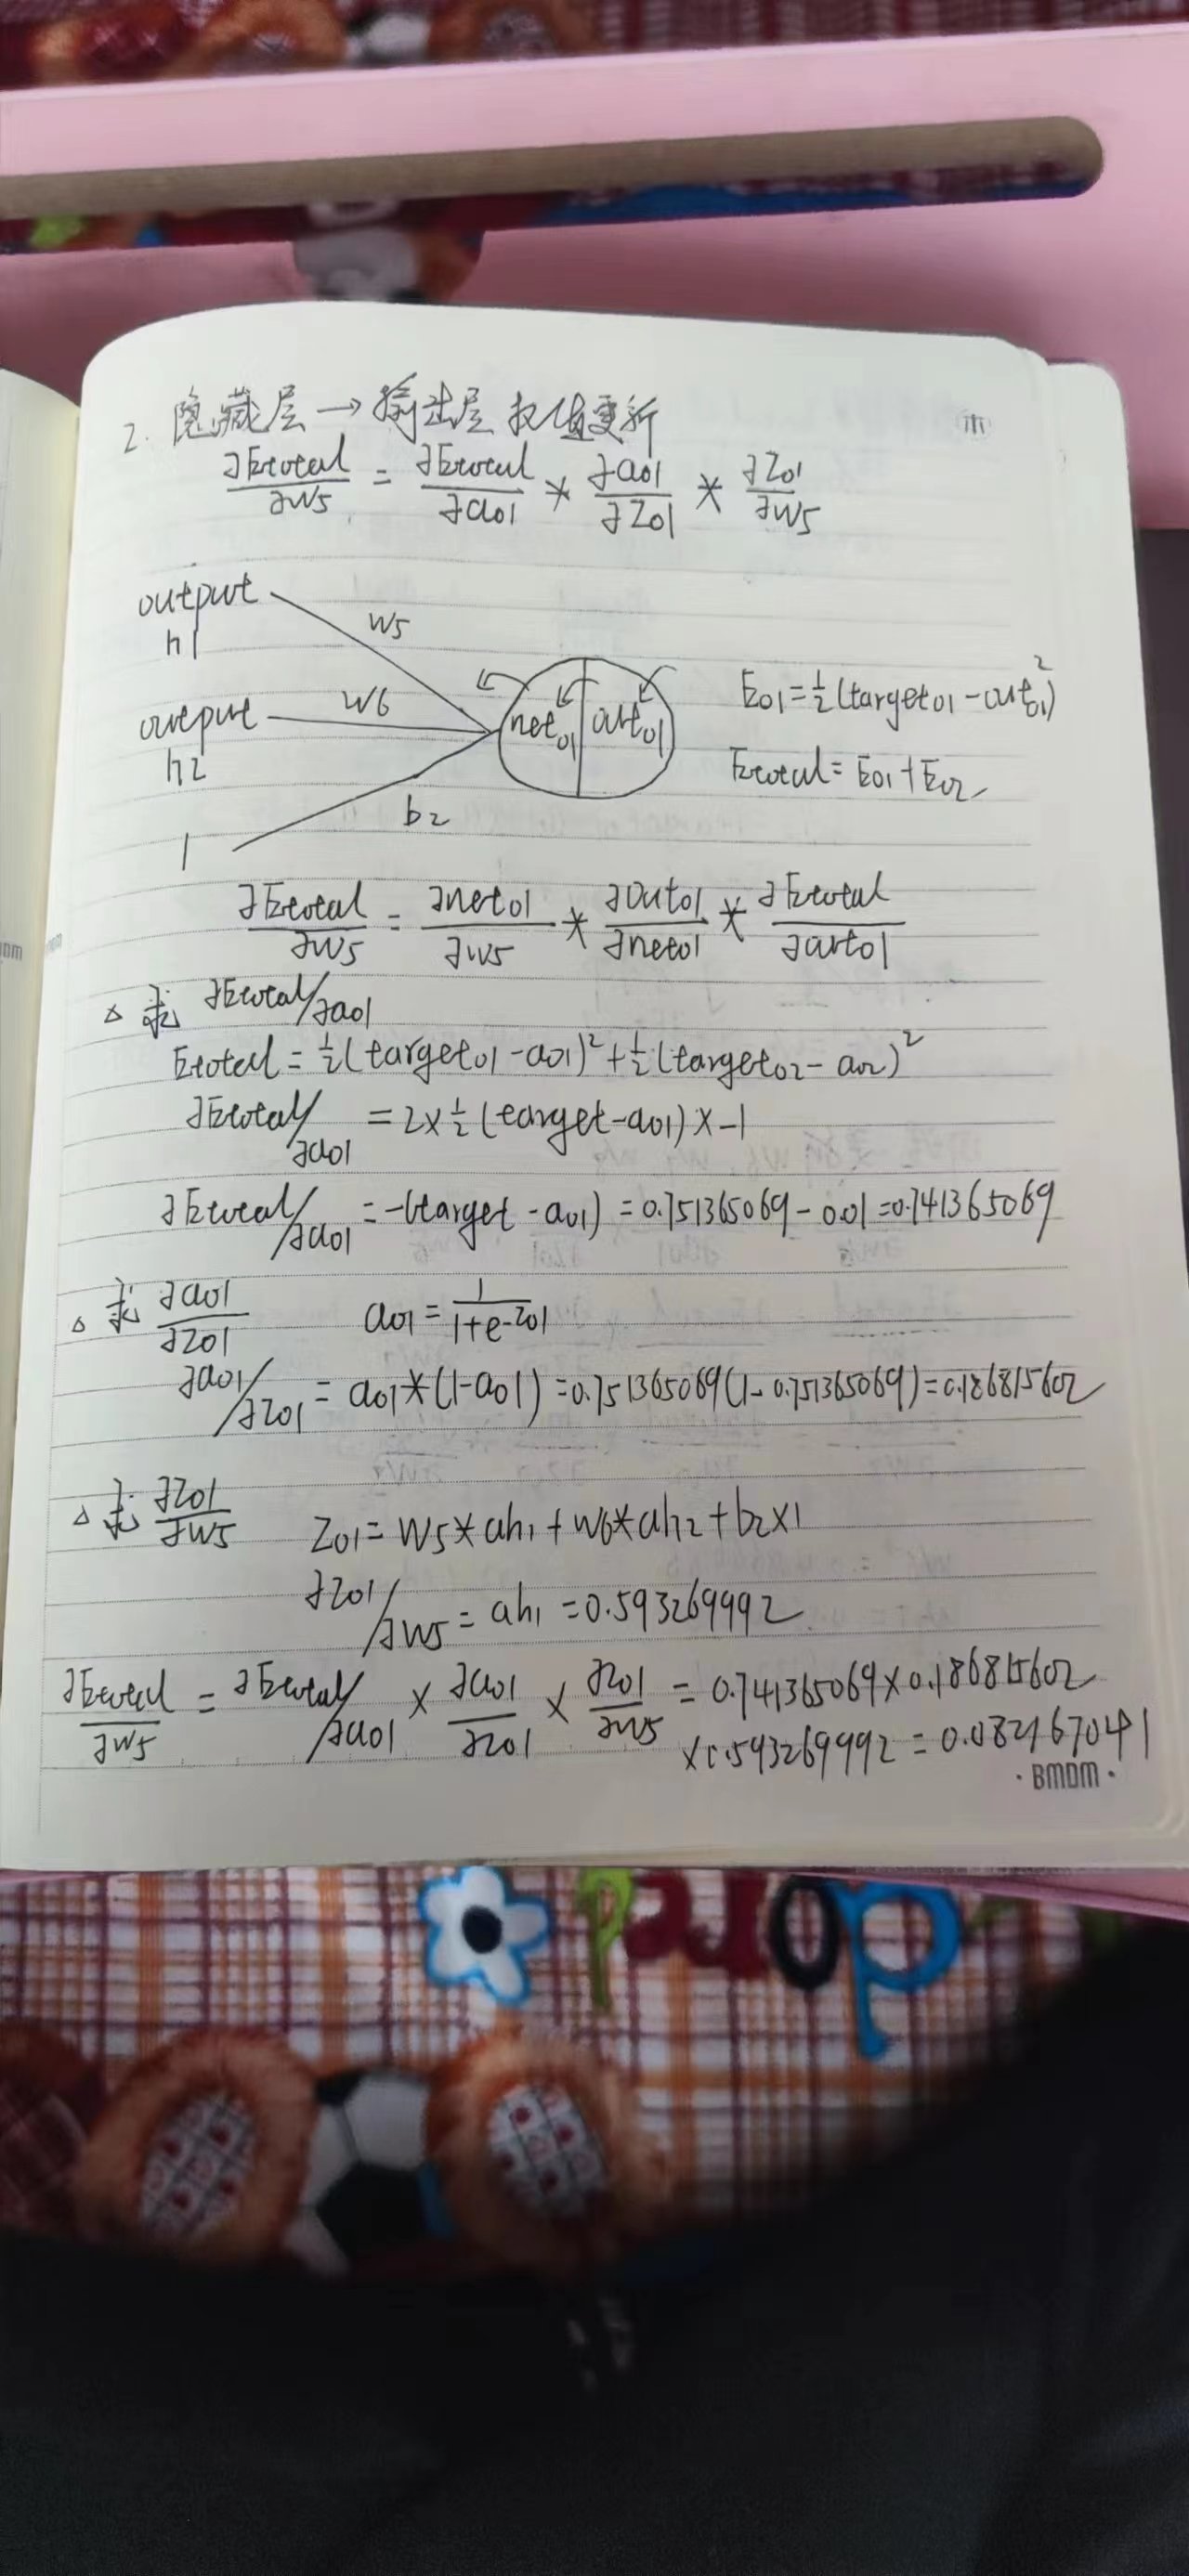 2. 隐藏层→输出层权值更新
∂Etotal/∂w5 = ∂Etotal/∂ao1 * ∂ao1/∂zo1 * ∂zo1/∂w5
output h1
w5
output h2
w6
1
b2
neto1 outo1
Eo1=½(targeto1-outo1)²
Etotal=Eo1+Eo2
∂Etotal/∂w5 = ∂neto1/∂w5 * ∂outo1/∂neto1 * ∂Etotal/∂outo1
△ 求 ∂Etotal/∂ao1
Etotal=½(targeto1-ao1)²+½(targeto2-ao2)²
∂Etotal/∂ao1 =2×½(target-ao1)×-1
∂Etotal/∂ao1 =-(target-ao1)=0.751365069-0.01=0.741365069
△ 求 ∂ao1/∂zo1 ao1=1/(1+e-zo1)
∂ao1/∂zo1 = ao1*(1-ao1)=0.751365069(1-0.751365069)=0.186815602
△ 求 ∂zo1/∂w5 zo1=w5*ah1+w6*ah2+b2×1
∂zo1/∂w5 = ah1=0.593269992
∂Etotal/∂w5 = ∂Etotal/∂ao1 × ∂ao1/∂zo1 × ∂zo1/∂w5 = 0.741365069×0.186815602
×0.593269992=0.082167041
·BMDM·
dord